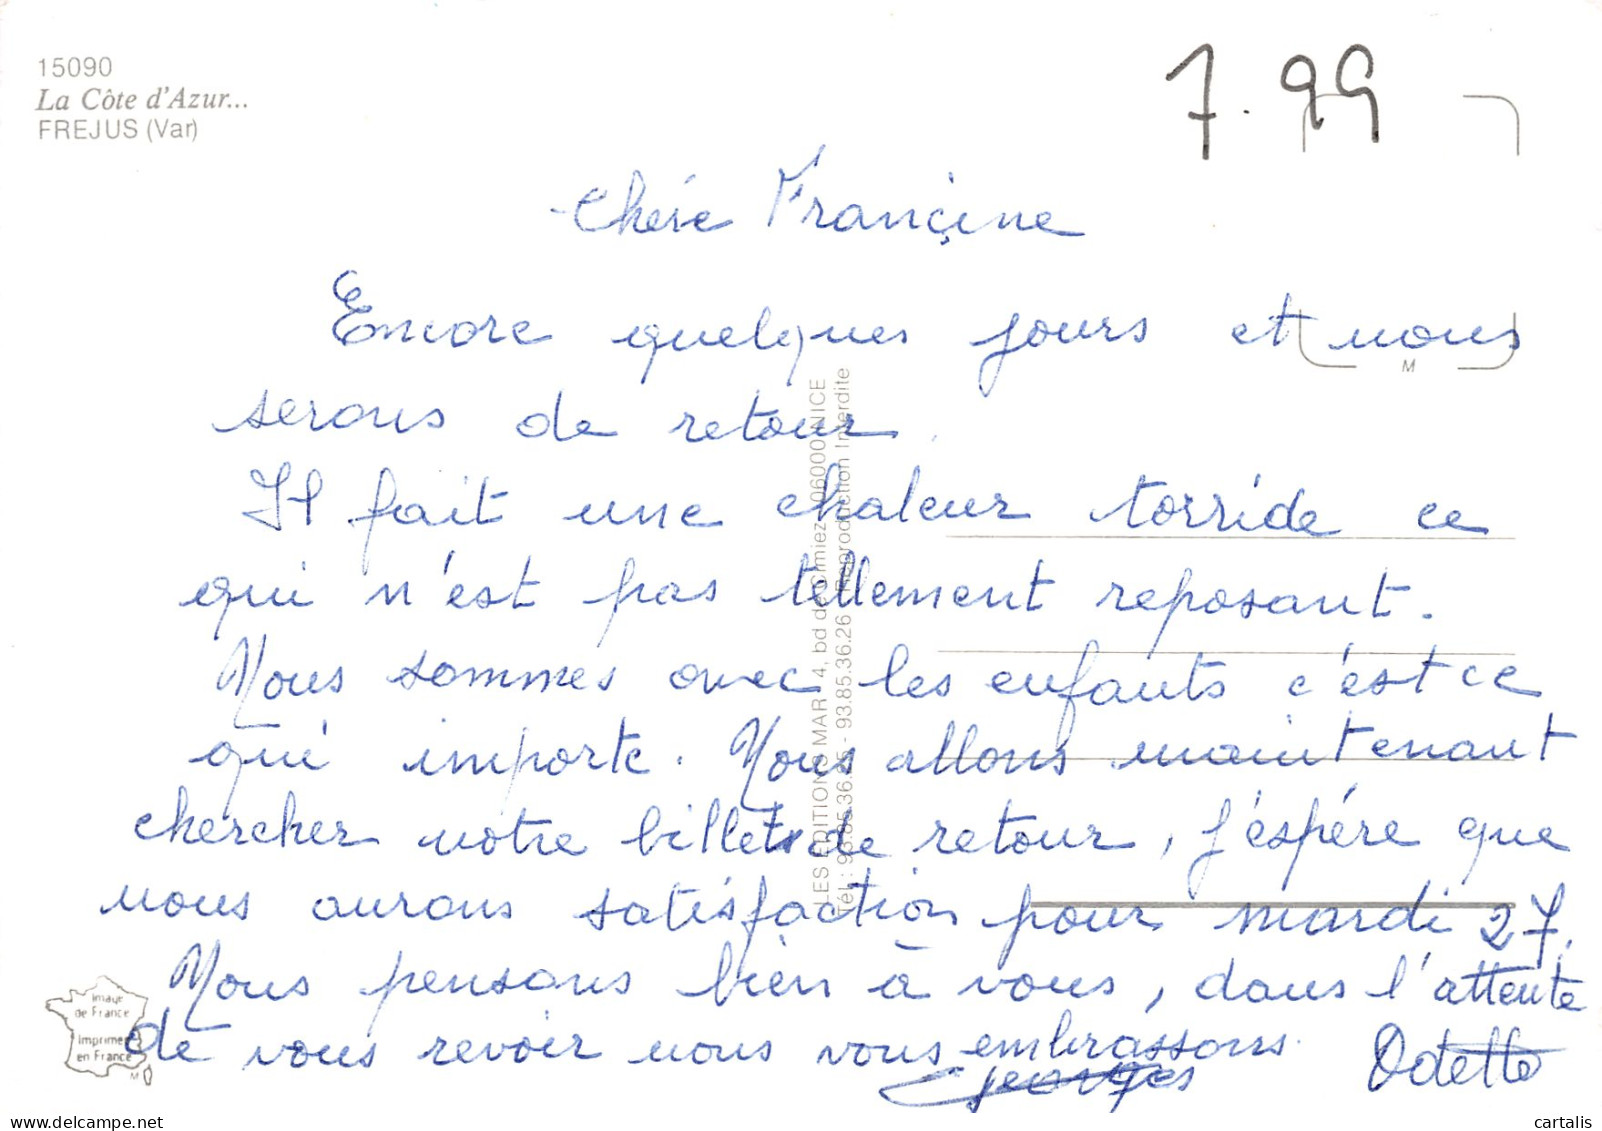 15090
La Côte d'Azur...
FREJUS (Var)
7.99
Chérie Françine
Encore quelques jours et nous
serons de retour.
Il fait une chaleur torride ce
qui n'est pas tellement reposant.
Nous sommes avec les enfants c'est ce
qui importe. Nous allons maintenant
chercher notre billets de retour, j'éspére que
nous aurons satisfaction pour mardi 27.
Nous pensons bien à vous, dans l'attente
de vous revoir nous vous embrassons.
Georges Odette
M
LES EDITIONS MAR 4, bd de Cimiez 06000 NICE
Tél.: 93.85.36.25 - 93.85.36.26 Reproduction Interdite
Image
de France
Imprimé
en France
M
www.delcampe.net
cartalis